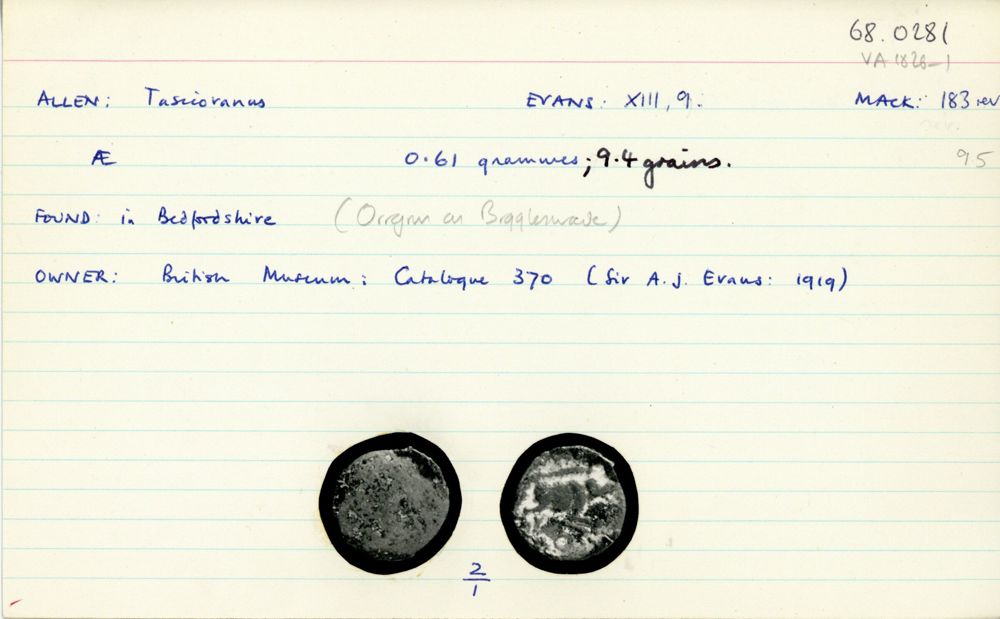 68.0281
VA 1826-1
ALLEN: Tasciovanus EVANS: XIII, 9. MACK: 183 rev
Æ 0.61 grammes; 9.4 grains. 95
FOUND: in Bedfordshire ( on Biggleswade)
OWNER: British Museum: Catalogue 370 (Sir A.J. Evans: 1919)
2
1